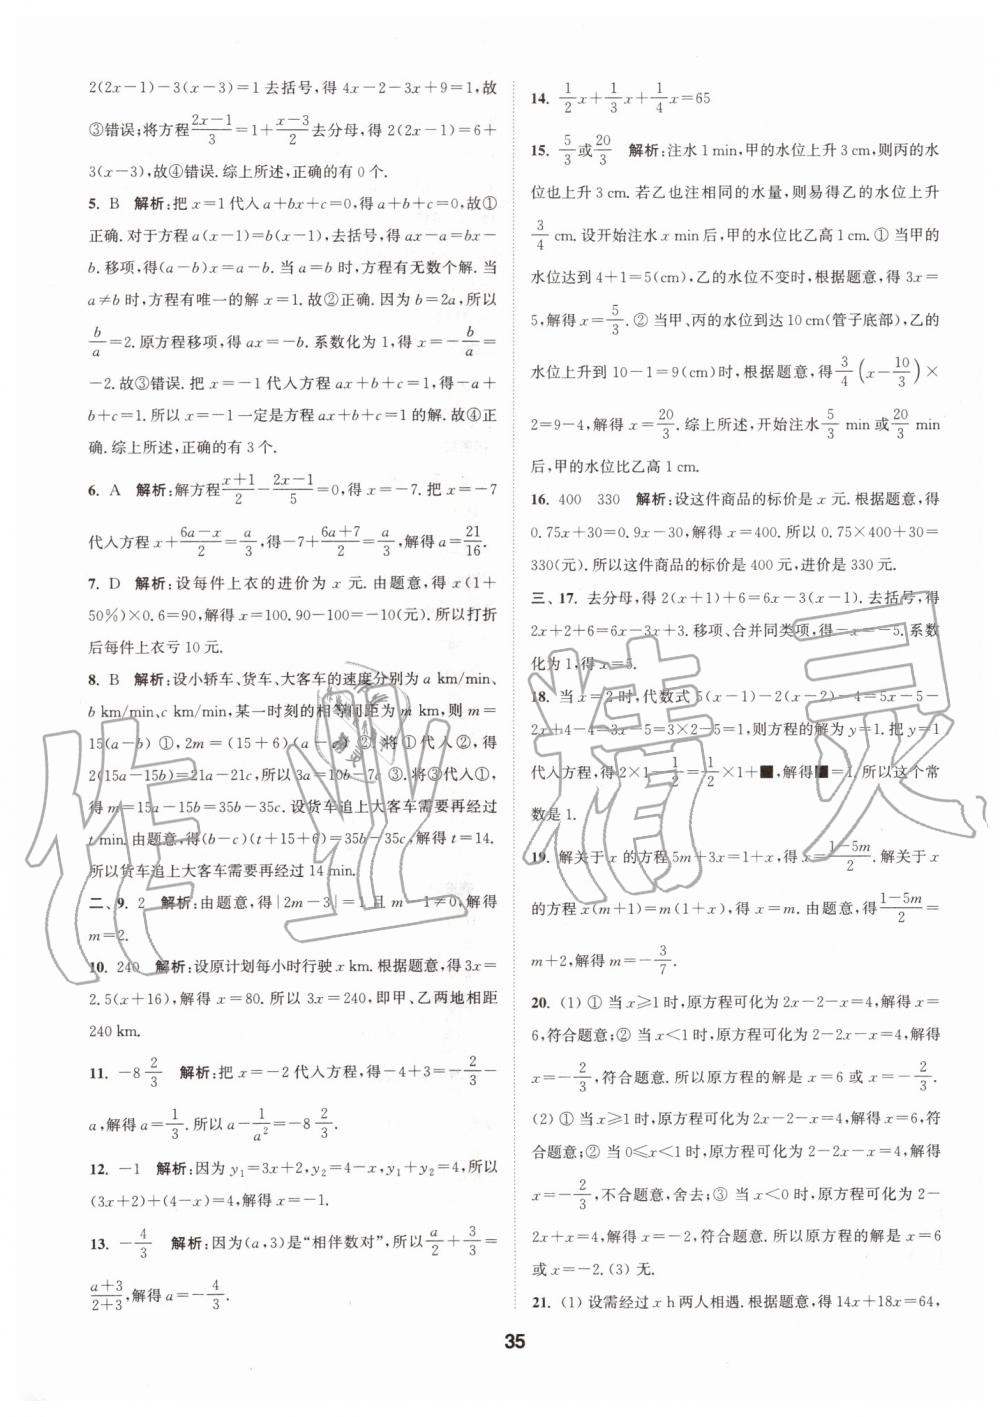 2(2x−1)−3(x−3)=1去括号,得4x−2−3x+9=1,故
③错误;将方程(2x−1)/3=1+(x−3)/2去分母,得2(2x−1)=6+
3(x−3),故④错误.综上所述,正确的有0个.
5. B 解析:把x=1代入a+bx+c=0,得a+b+c=0,故①
正确.对于方程a(x−1)=b(x−1),去括号,得ax−a=bx−
b.移项,得(a−b)x=a−b.当a=b时,方程有无数个解.当
a≠b时,方程有唯一的解x=1.故②正确.因为b=2a,所以
b/a=2.原方程移项,得ax=−b.系数化为1,得x=−b/a=
−2.故③错误.把x=−1代入方程ax+b+c=1,得−a+
b+c=1.所以x=−1一定是方程ax+b+c=1的解.故④正
确.综上所述,正确的有3个.
6. A 解析:解方程(x+1)/2−(2x−1)/5=0,得x=−7.把x=−7
代入方程x+(6a−x)/2=a/3,得−7+(6a+7)/2=a/3,解得a=21/16.
7. D 解析:设每件上衣的进价为x元.由题意,得x(1+
50%)×0.6=90,解得x=100.90−100=−10(元).所以打折
后每件上衣亏10元.
8. B 解析:设小轿车、货车、大客车的速度分别为a km/min、
b km/min、c km/min,某一时刻的相等间距为m km,则m=
15(a−b) ①,2m=(15+6)(a−c) ②.将①代入②,得
2(15a−15b)=21a−21c,所以3a=10b−7c ③.将③代入①,
得m=15a−15b=35b−35c.设货车追上大客车需要再经过
t min.由题意,得(b−c)(t+15+6)=35b−35c,解得t=14.
所以货车追上大客车需要再经过14 min.
二、9. 2 解析:由题意,得|2m−3|=1且m−1≠0,解得
m=2.
10. 240 解析:设原计划每小时行驶x km.根据题意,得3x=
2.5(x+16),解得x=80.所以3x=240,即甲、乙两地相距
240 km.
11. −8 2/3 解析:把x=−2代入方程,得−4+3=−2/3−
a,解得a=1/3.所以a−1/a²=−8 2/3.
12. −1 解析:因为y₁=3x+2,y₂=4−x,y₁+y₂=4,所以
(3x+2)+(4−x)=4,解得x=−1.
13. −4/3 解析:因为(a,3)是“相伴数对”,所以a/2+3/3=
(a+3)/(2+3),解得a=−4/3.
14. 1/2x+1/3x+1/4x=65
15. 5/3或20/3 解析:注水1 min,甲的水位上升3 cm,则丙的水
位也上升3 cm.若乙也注相同的水量,则易得乙的水位上升
3/4 cm.设开始注水x min后,甲的水位比乙高1 cm.① 当甲的
水位达到4+1=5(cm),乙的水位不变时,根据题意,得3x=
5,解得x=5/3.② 当甲、丙的水位到达10 cm(管子底部),乙的
水位上升到10−1=9(cm)时,根据题意,得3/4(x−10/3)×
2=9−4,解得x=20/3.综上所述,开始注水5/3 min或20/3 min
后,甲的水位比乙高1 cm.
16. 400 330 解析:设这件商品的标价是x元.根据题意,得
0.75x+30=0.9x−30,解得x=400.所以0.75×400+30=
330(元).所以这件商品的标价是400元,进价是330元.
三、17. 去分母,得2(x+1)+6=6x−3(x−1).去括号,得
2x+2+6=6x−3x+3.移项、合并同类项,得−x=−5.系数
化为1,得x=5.
18. 当x=2时,代数式5(x−1)−2(x−2)−4=5x−5−
2x+4−4=3x−5=3×2−5=1,则方程的解为y=1.把y=1
代入方程,得2×1−1/2=1/2×1+■,解得■=1.所以这个常
数是1.
19. 解关于x的方程5m+3x=1+x,得x=(1−5m)/2.解关于x
的方程x(m+1)=m(1+x),得x=m.由题意,得(1−5m)/2=
m+2,解得m=−3/7.
20. (1) ① 当x≥1时,原方程可化为2x−2−x=4,解得x=
6,符合题意;② 当x<1时,原方程可化为2−2x−x=4,解得
x=−2/3,符合题意.所以原方程的解是x=6或x=−2/3.
(2) ① 当x≥1时,原方程可化为2x−2−x=4,解得x=6,符
合题意;② 当0≤x<1时,原方程可化为2−2x−x=4,解得
x=−2/3,不合题意,舍去;③ 当x<0时,原方程可化为2−
2x+x=4,解得x=−2,符合题意.所以原方程的解是x=6
或x=−2.(3) 无.
21. (1) 设需经过x h两人相遇.根据题意,得14x+18x=64,
35
作业精灵